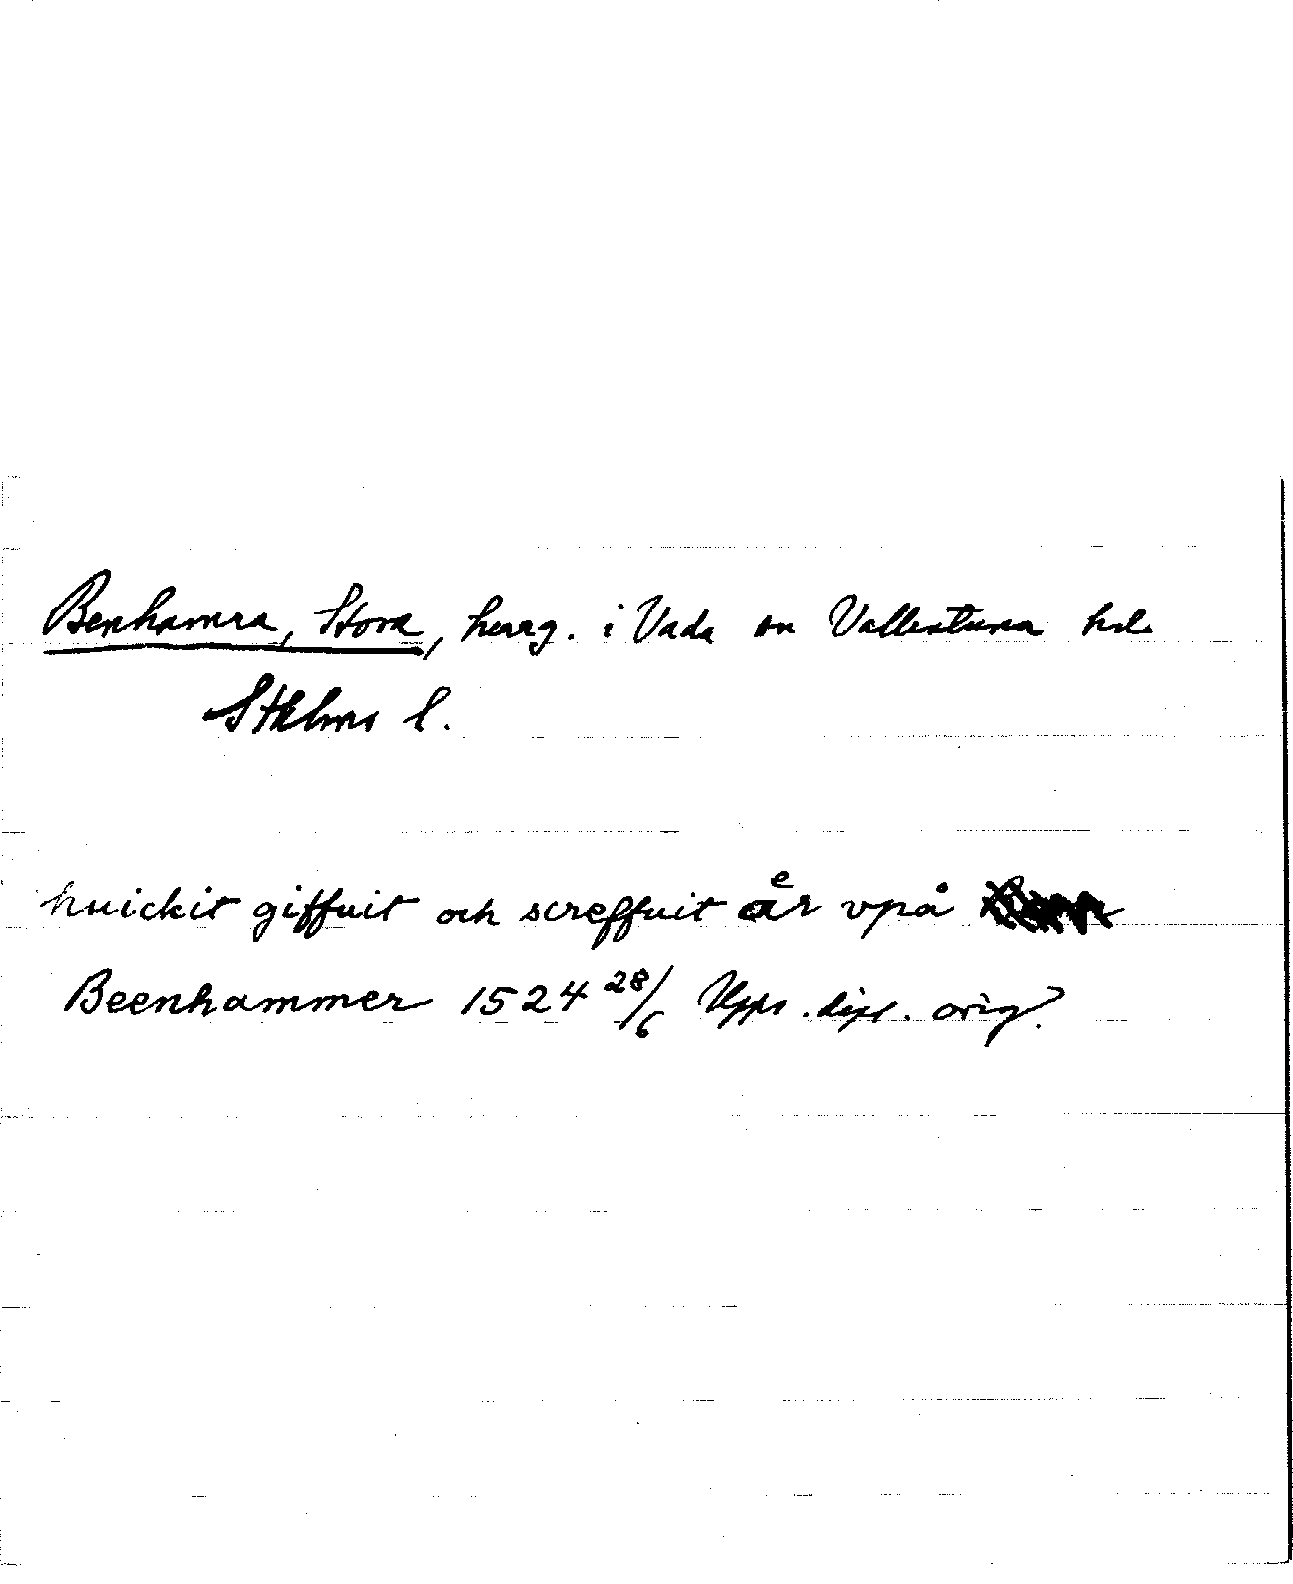 Benhamra, Stora, herrg. i Vada sn Vallentuna hd
Sthlms l.
huickit giffuit och screffuit aͤr vpå
Beenhammer 1524 28/6 Upps. dipl. orig?